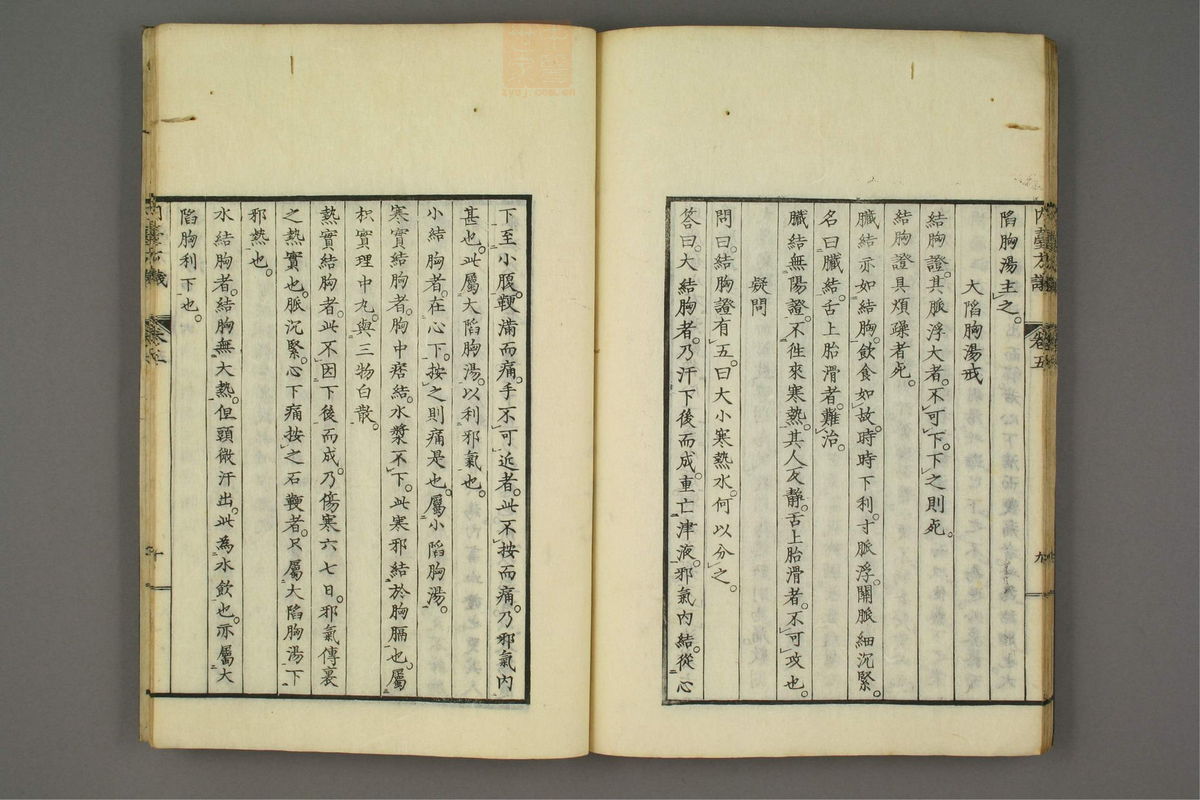 陷胸湯主之。
大陷胸湯戒
結胸證。其脈浮大者。不可下。下之則死。
結胸證具煩躁者死。
臟結亦如結胸。飲食如故。時時下利。寸脈浮。關脈細沉緊。
名曰臟結。舌上胎滑者。難治。
臟結無陽證。不徃來寒熱。其人反靜。舌上胎滑者。不可攻也。
疑問
問曰。結胸證有五。曰大小寒熱水。何以分之。
答曰。大結胸者。乃汗下後而成。重亡津液。邪氣內結。從心
下至小腹。鞕滿而痛。手不可近者。此不按而痛。乃邪氣內
甚也。此屬大陷胸湯。以利邪氣也。
小結胸者。在心下。按之則痛是也。屬小陷胸湯。
寒實結胸者。胸中痞結。水漿不下。此寒邪結於胸膈也。屬
枳實理中丸。與三物白散。
熱實結胸者。此不因下後而成。乃傷寒六七日。邪氣傳裹
之熱實也。脈沉緊。心下痛按之石鞕者。只屬大陷胸湯下
邪熱也。
水結胸者。結胸無大熱。但頭微汗出。此為水飲也。亦屬大
陷胸利下也。
內臺方議
卷五